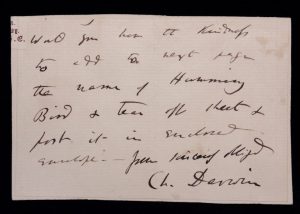 Will you have the kindness
to add to next page
the name of Humming
Bird & tear off sheet &
post it in enclosed
envelope — yours sincerely obliged
Ch. Darwin